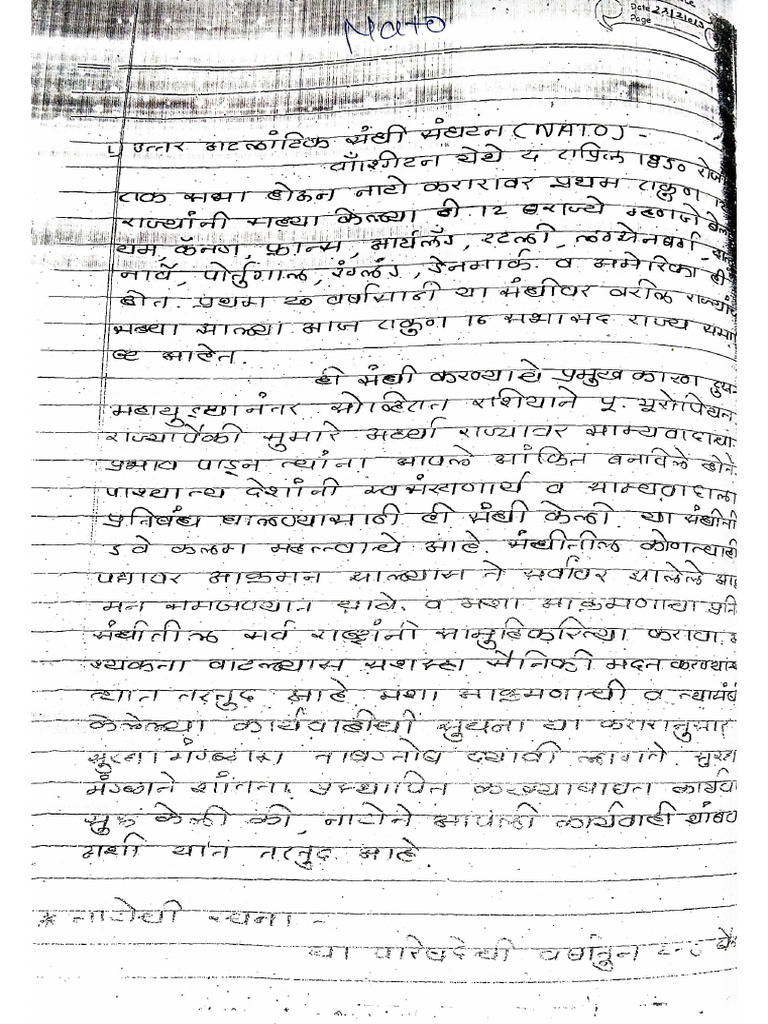 Date 22/2/2013
Page
Nato
1) उत्तर अटलांटिक संधी संघटन (NATO) -
वॉशींटन येथे ४ एप्रिल १९५० रोजी
एक सभा होऊन नाटो करारावर प्रथम एकुण १२
राज्यांनी सह्या केल्या ही १२ राज्ये म्हणजे बेल
यम, कॅनडा, फ्रान्स, आर्यलँड, इटली, लग्झेनबर्ग,
नार्वे, पोर्तुगाल, इंग्लंड, डेनमार्क व अमेरिका ही
होत. प्रथम २० वर्षासाठी या संधीवर वरील राज्यां
सह्या झाल्या आज एकुण १६ सभासद राज्य सभा
आहेत.
ही संधी करण्याचे प्रमुख कारण दुस
महायुध्दानंतर सोव्हितत रशियाने पू. यूरोपियन
राज्यापैकी सुमारे अर्ध्या राज्यावर साम्यवादाचा
प्रभाव पाडून त्यांना आपले अंकित बनविले होते.
पाश्चात्य देशांनी स्वसंरक्षणार्थ व साम्यवादाला
प्रतिबंध घालण्यासाठी ही संधी केली. या संधीती
५ वे कलम महत्त्वाचे आहे. संधीतील कोणत्याही
पक्षावर आक्रमन झाल्यास ते सर्वावर झालेले आक्र
मन समजण्यात यावे. व अशा आक्रमणाचा प्रति
संधीतील सर्व राष्ट्रांनी सामुहिकरित्या करावा.
श्यकता वाटल्यास सशस्त्र सैनिकी मदत करण्याच
त्यात तरतुद आहे. अशा आक्रमणाची व त्यासंबं
केलेल्या कार्यवाहीची सुचना या करारानुसार
सुरक्षा मंडळास ताबडतोब द्यावी लागते. सुरक्षा
मंडळाने शांतता प्रस्थापित करण्याबाबत कार्यवा
सुरु केली की, नाटोने आपली कार्यवाही थांबव
अशी यात तरतुद आहे.
* नाटोची रचना -
या परिषदेची वर्षातून